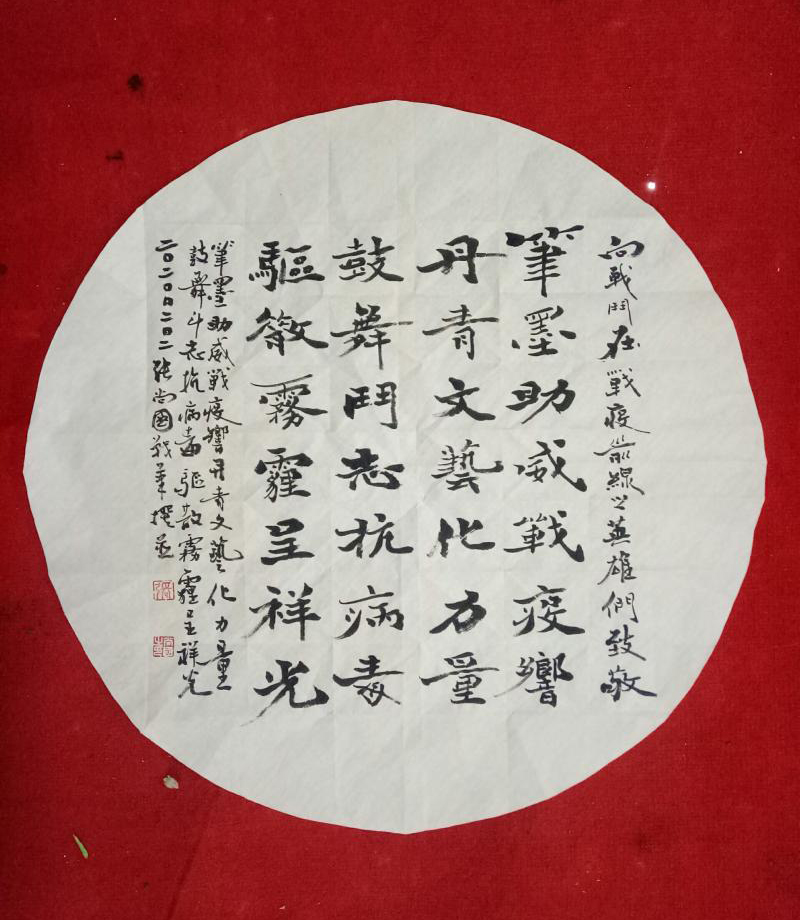 向戰鬥在戰疫前線之英雄們致敬
筆墨助威戰疫響
丹青文藝化力量
鼓舞鬥志抗病毒
驅散霧霾呈祥光
筆墨助威戰疫響丹青文藝化力量
鼓舞斗志抗病毒驅散霧霾呈祥光
二〇二〇〇二〇二張尚國戰筆撰並